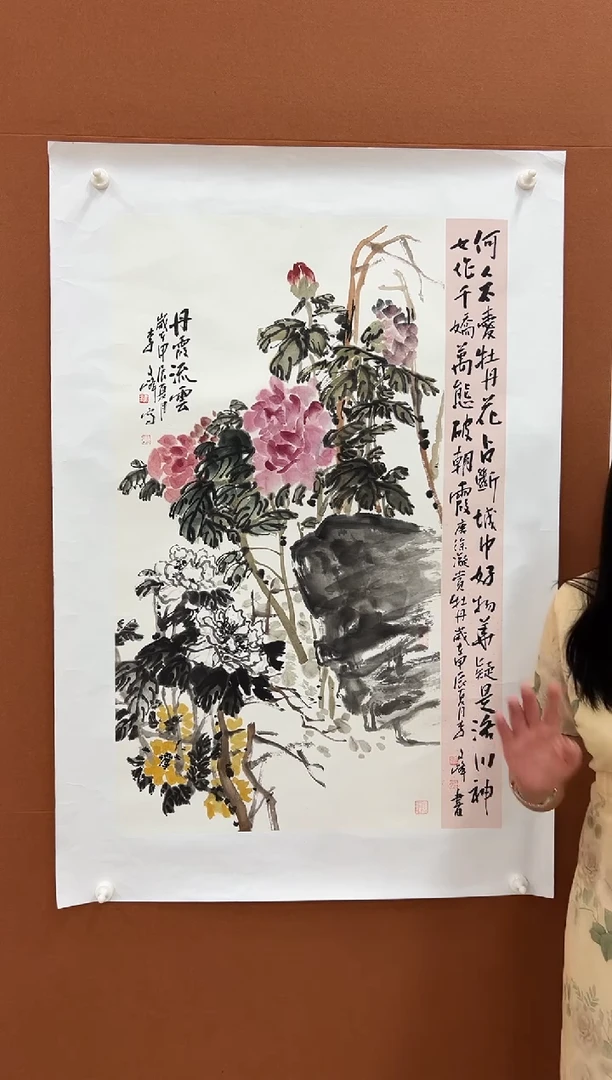 何人不愛牡丹花占斷城中好物華疑是洛川神
女作千嬌萬態破朝霞唐徐凝賞牡丹歲在甲辰夏月李峰書
丹霞流雲
歲在甲辰夏月
李峰寫